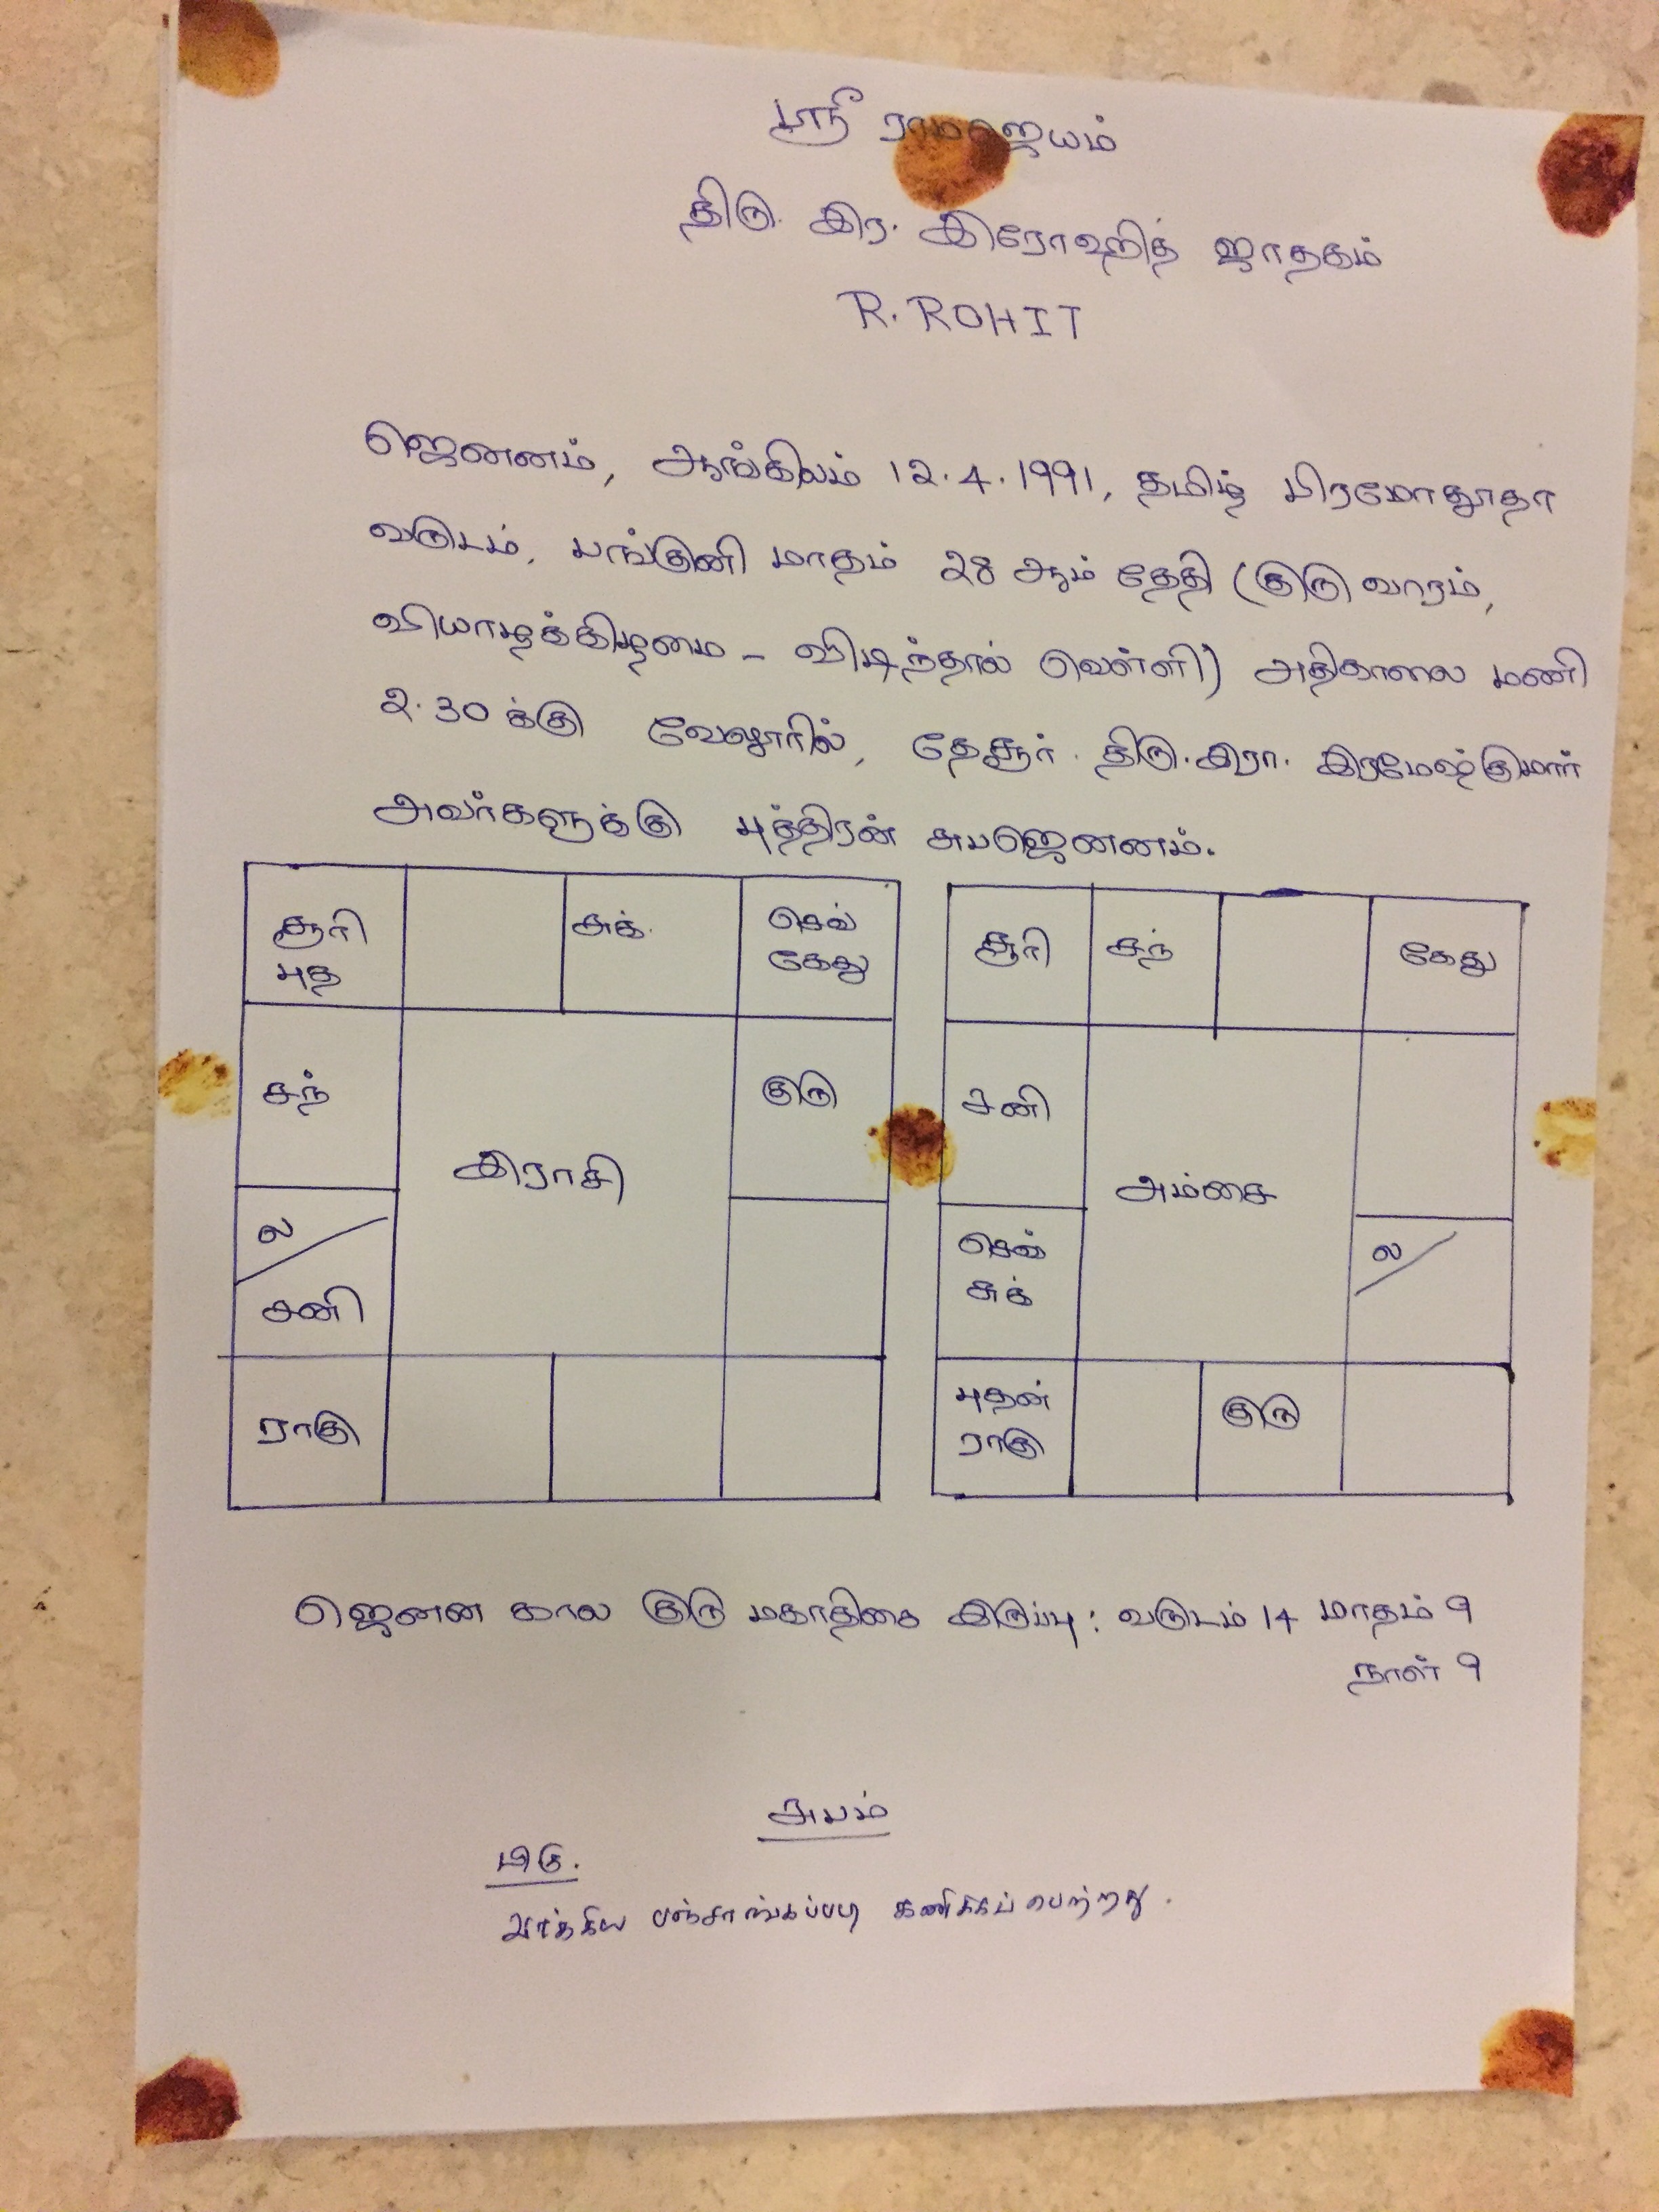 ஸ்ரீ ராமஜெயம்
திரு. இர. இரோஹித் ஜாதகம்
R. ROHIT
ஜெனனம், ஆங்கிலம் 12.4.1991, தமிழ் பிரமோதூதா
வருடம், பங்குனி மாதம் 28 ஆம் தேதி (குரு வாரம்,
வியாழக்கிழமை – விடிந்தால் வெள்ளி) அதிகாலை மணி
2.30 க்கு வேலூரில், தேசூர். திரு. இரா. இரமேஷ்குமார்
அவர்களுக்கு புத்திரன் சுபஜெனனம்.
சூரி
புத
சுக்.
செவ்
கேது
சந்
குரு
இராசி
ல
சனி
ராகு
சூரி
சந்
கேது
சனி
அம்சை
செவ்
சுக்
ல
புதன்
ராகு
குரு
ஜெனன கால குரு மகாதிசை இருப்பு: வருடம் 14 மாதம் 9
நாள் 9
சுபம்
பிகு.
வாக்கிய பஞ்சாங்கப்படி கணிக்கப் பெற்றது.